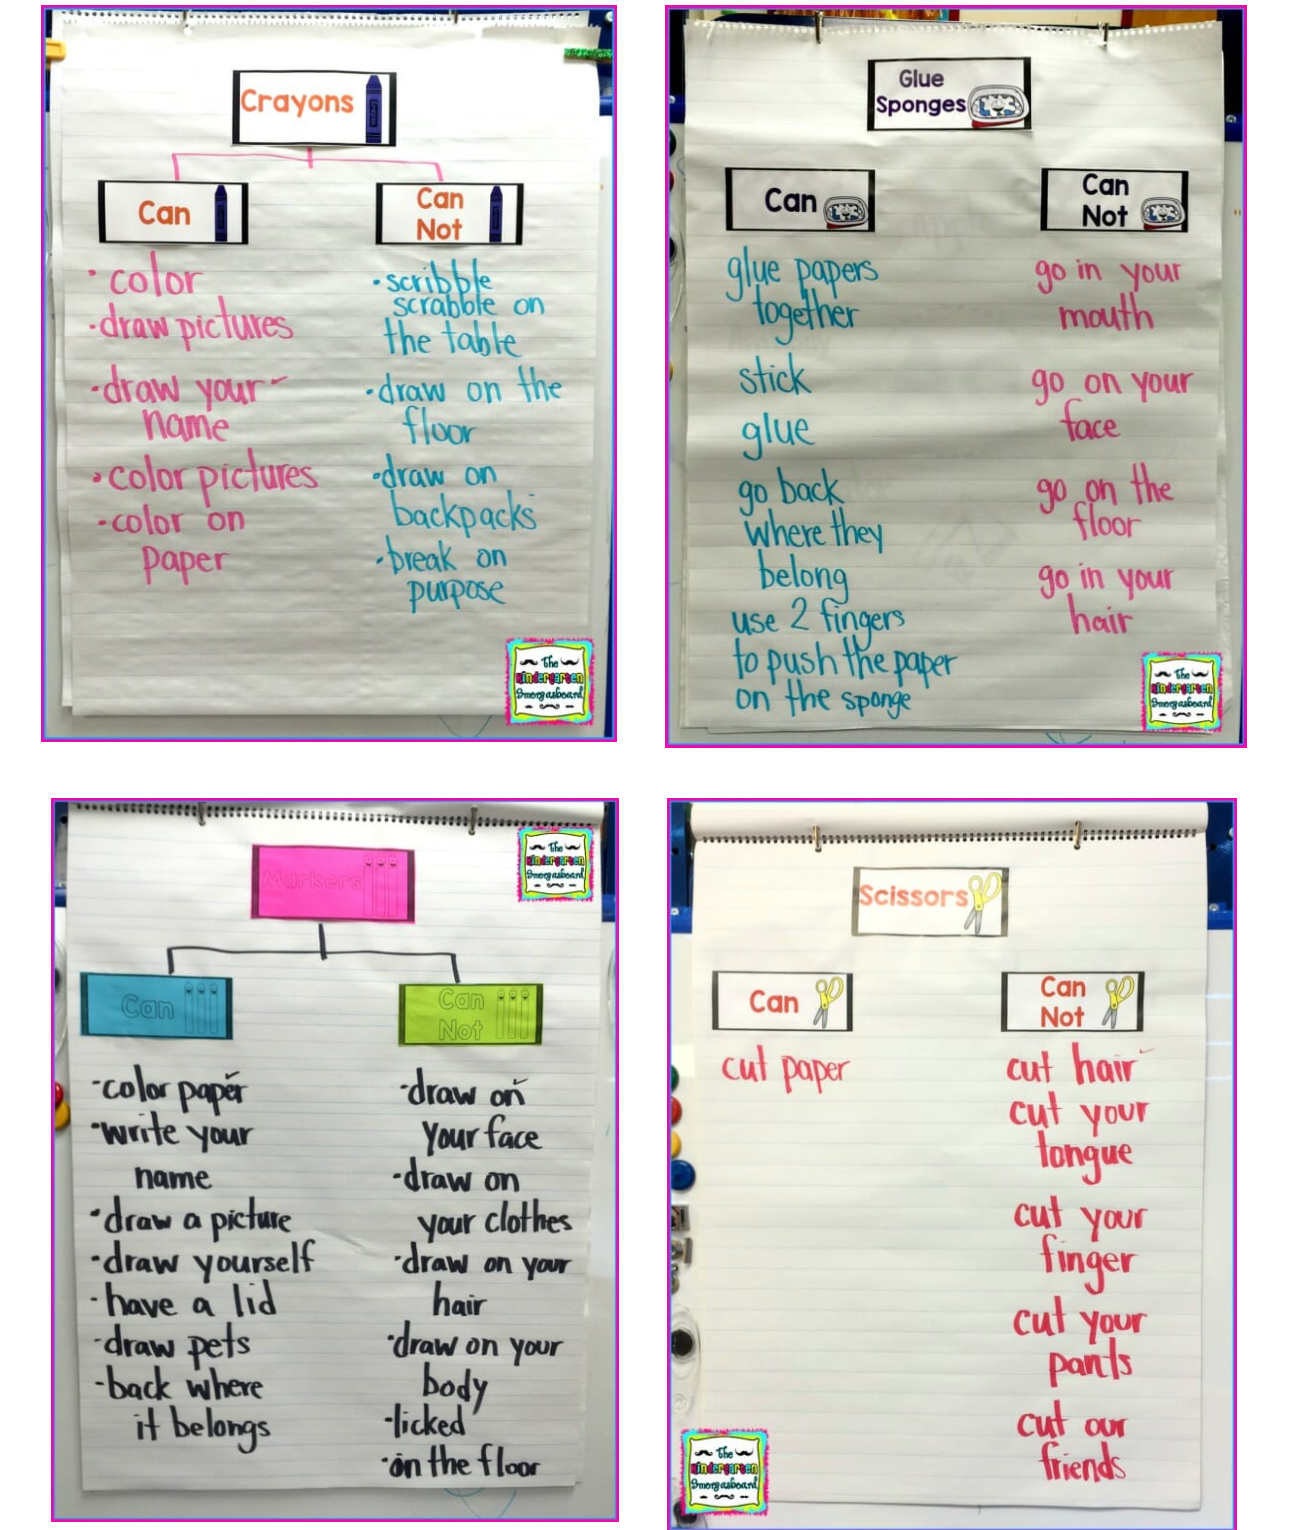 Crayons
Can
Can
Not
• color
• draw pictures
• draw your
name
• color pictures
• color on
paper
• scribble
scrabble on
the table
• draw on the
floor
• draw on
backpacks
• break on
purpose
The
Kindergarten
Smorgasboard
Glue
Sponges
Can
Can
Not
glue papers
together
stick
glue
go back
where they
belong
use 2 fingers
to push the paper
on the sponge
go in your
mouth
go on your
face
go on the
floor
go in your
hair
The
Kindergarten
Smorgasboard
The
Kindergarten
Smorgasboard
Markers
Can
Can
Not
- color paper
- write your
name
- draw a picture
- draw yourself
- have a lid
- draw pets
- back where
it belongs
- draw on
your face
- draw on
your clothes
- draw on your
hair
- draw on your
body
- licked
- on the floor
Scissors
Can
Can
Not
cut paper
cut hair
cut your
tongue
cut your
finger
cut your
pants
cut our
friends
The
Kindergarten
Smorgasboard